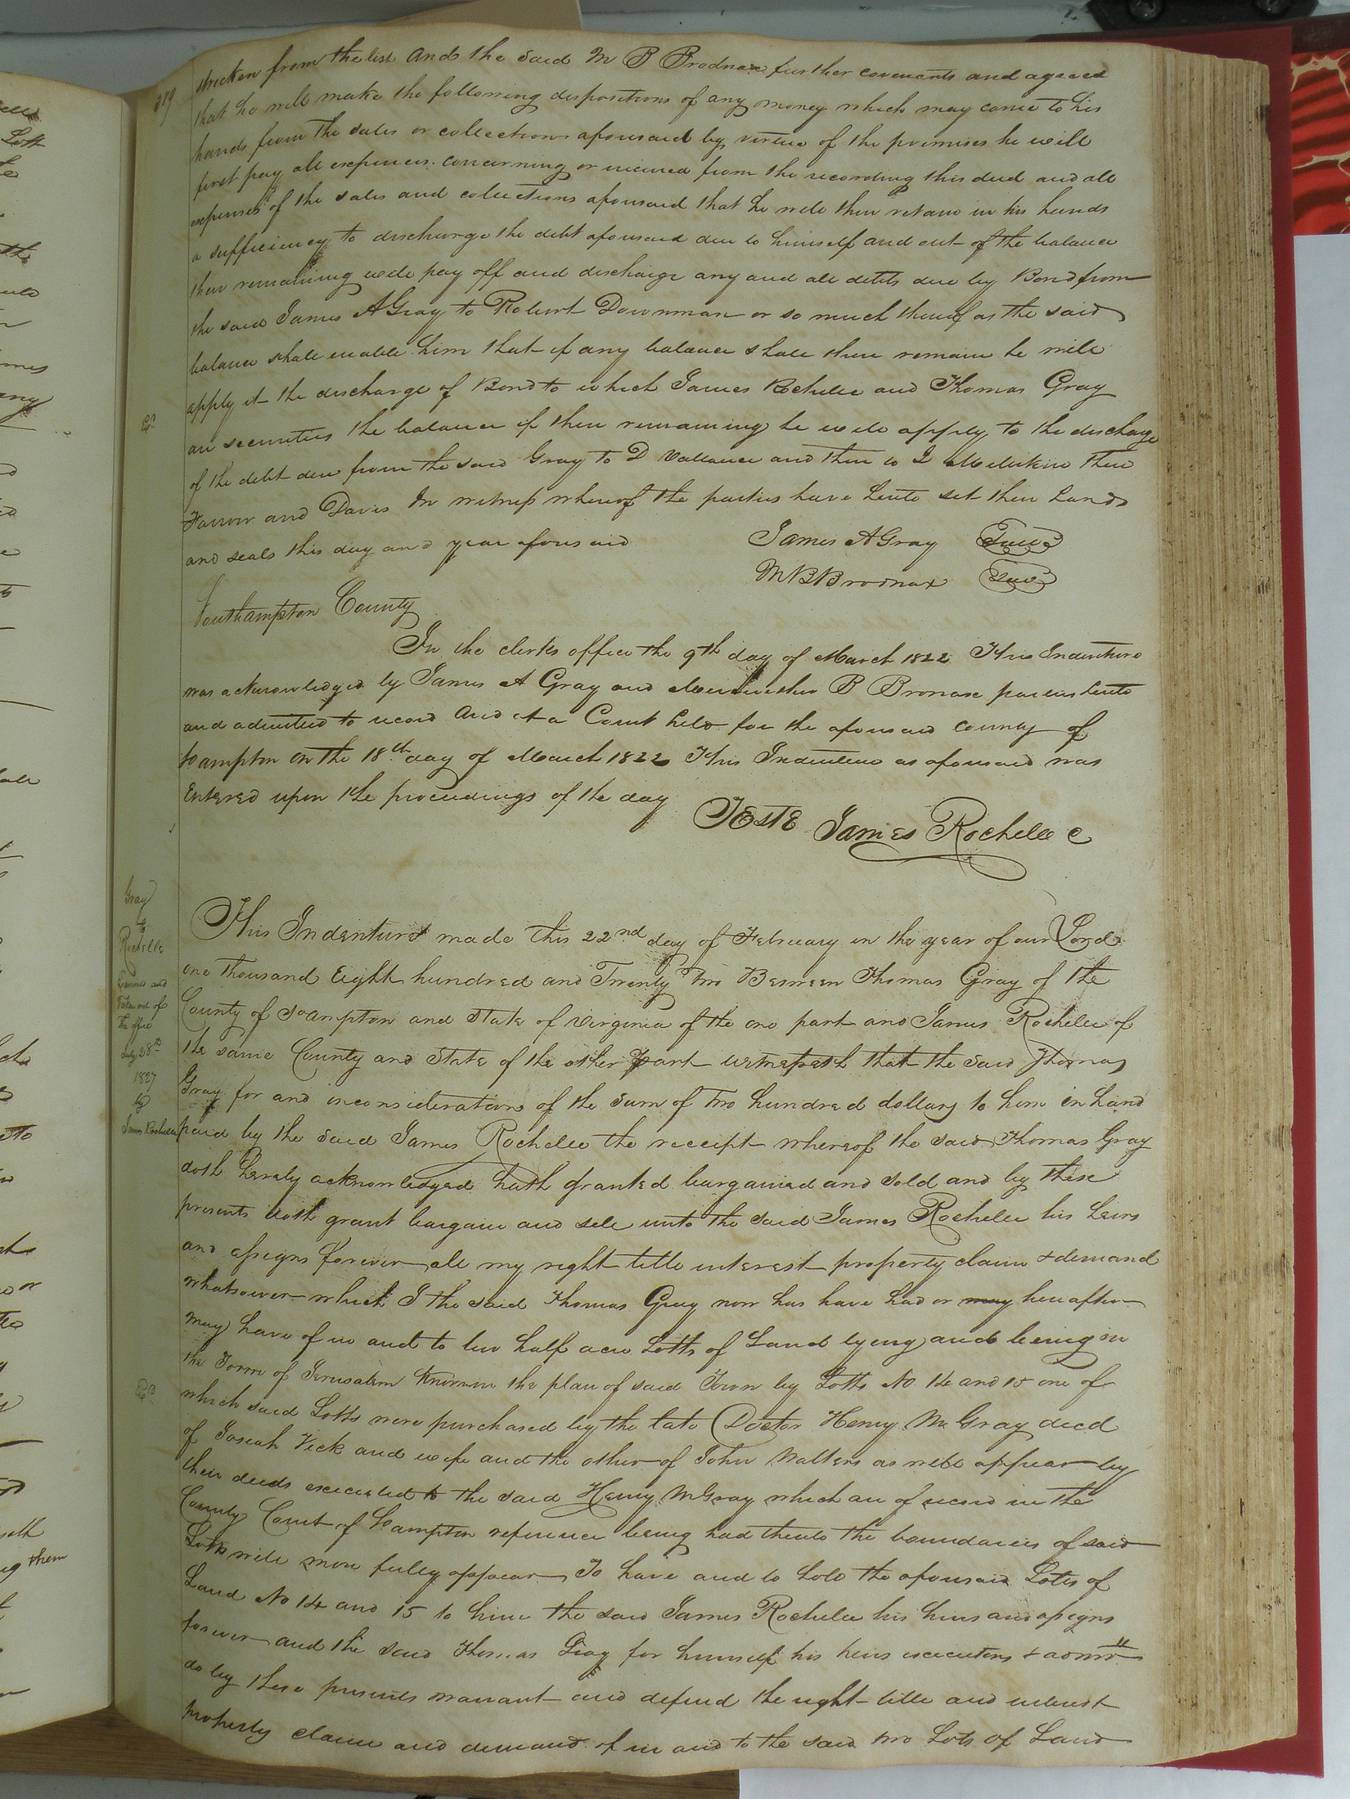 319
stricken from the list and the said M B Brodnax further covenants and agrees
that he will make the following dispositions of any money which may come to his
hands from the sales or collections aforesaid by virtue of the premises he will
first pay all expences concerning or incured from the recording this deed and all
expenses of the sales and collections aforesaid that he will then retain in his hands
a sufficiency to discharge the debt aforesaid due to himself and out of the balance
then remaining will pay off and discharge any and all debts due by Bond from
the said James A Gray to Robert Downman or so much thereof as the said
balance shall enable him that if any balance shall then remain he will
apply it the discharge of Bond to which James Rochelle and Thomas Gray
are securities the balance if then remaining he will apply to the discharge
of the debt due from the said Gray to D Vallance and then to
Farrow and Davis In witness whereof the parties have hereto set their hands
and seals this day and year aforesaid James A Gray Seal
M B Brodnax Seal
Southampton County
In the clerks office the 9th day of March 1822 This Indenture
was acknowledged by James A Gray and B Brodnax parties hereto
and admitted to record and at a Court held for the aforesaid county of
Sampton on the 18th day of March 1822 This Indenture as aforesaid was
Entered upon the proceedings of the day
TEStE James Rochelle C
Gray
to
Rochelle
Examined and
taken out of
the office
July 28th
1827
by
James Rochelle
This Indenture made this 22nd day of February in the year of our Lord
one thousand Eight hundred and Twenty two Between Thomas Gray of the
County of Sampton and State of Virginia of the one part and James Rochelle of
the same County and State of the other part witnesseth that the said Thomas
Gray for and inconsideration of the sum of two hundred dollars to him in hand
paid by the said James Rochelle the receipt whereof the said Thomas Gray
doth hereby acknowledged hath granted bargained and sold and by these
presents doth grant bargain and sell unto the said James Rochelle his heirs
and assigns forever all my right title interest property claim & demand
whatsoever which I the said Thomas Gray now has have had or may hereafter
may have of in and to two half acre Lotts of Land lying and being in
the Town of Jerusalem known in the plan of said Town by Lotts No 14 and 15 one of
which said Lotts were purchased by the late Doctor Henry M Gray decd
of Josiah Vick and wife and the other of John Walters as will appear by
their deeds executed to the said Henry M Gray which are of record in the
County Court of Sampton reference being had thereto the boundaries of said
Lots will more fully appear To have and to hold the aforesaid Lotts of
Land No 14 and 15 to him the said James Rochelle his heirs and assigns
forever and the said Thomas Gray for himself his heirs executors & admrs
do by these presents warrant and defend the right title and interest
property claim and demand of in and to the said two Lots of Land